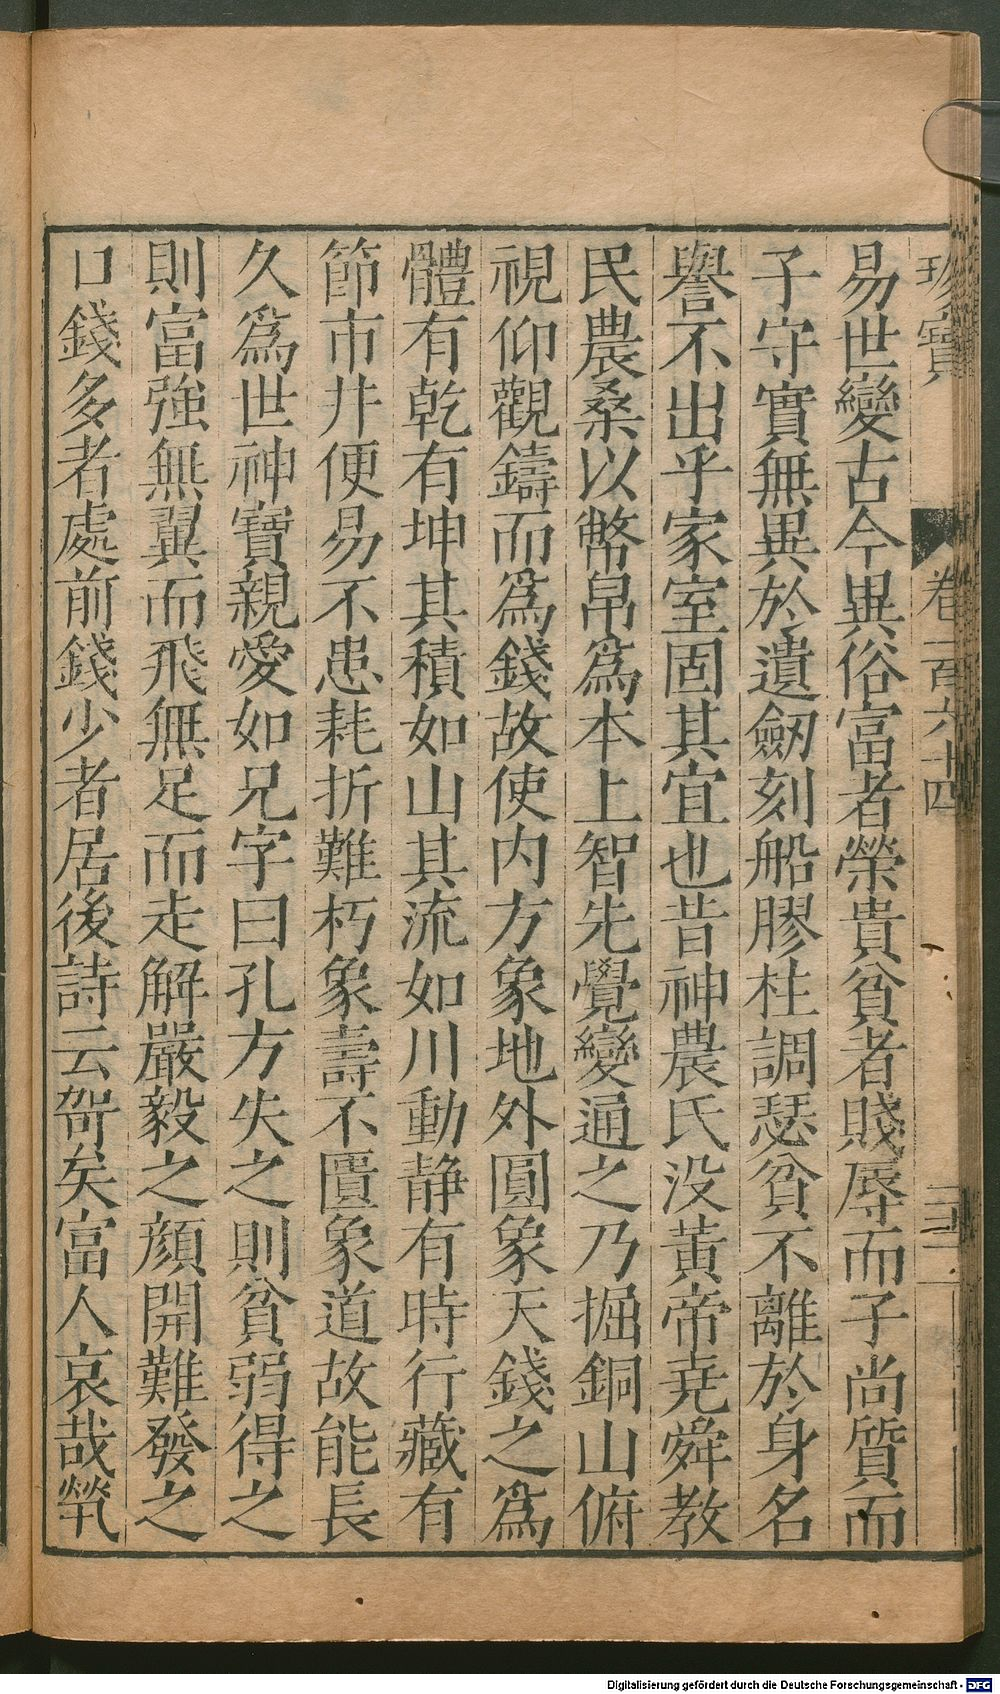 珍寶 卷一百六十四
易世變古今異俗富者榮貴貧者賤辱而子尚質而
子守實無異於遺劒刻船膠柱調瑟貧不離於身名
譽不出乎家室固其宜也昔神農氏没黄帝尭舜教
民農桑以幣帛爲本上智先覺變通之乃掘銅山俯
視仰觀鑄而爲錢故使内方象地外圓象天錢之爲
體有乾有坤其積如山其流如川動静有時行藏有
節市井便易不患耗折難朽象壽不匱象道故能長
久爲世神寶親愛如兄字曰孔方失之則貧弱得之
則富強無翼而飛無足而走解嚴毅之顔開難發之
口錢多者處前錢少者居後詩云哿矣富人哀哉煢
Digitalisierung gefördert durch die Deutsche Forschungsgemeinschaft - DFG